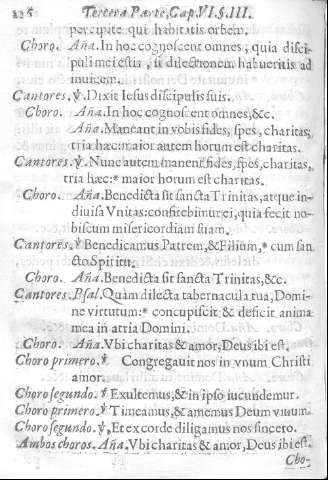 Tercera Parte, Cap. VI. §. III.
percipite qui habitatis orbem.
Choro. Aña. In hoc cognoscent omnes, quia disci-
puli mei estis, si dilectionem habueritis ad
inuicem.
Cantores. ℣. Dixit Iesus discipulis suis.
Choro. Aña. In hoc cognoscent omnes, &c.
Aña. Maneant in vobis fides, spes, charitas,
tria hæc: maior autem horum est charitas.
Cantores. ℣. Nunc autem manent fides, spes, charitas,
tria hæc:* maior horum est charitas.
Choro. Aña. Benedicta sit sancta Trinitas, atque in-
diuisa Vnitas: confitebimur ei, quia fecit no-
biscum misericordiam suam.
Cantores. ℣ Benedicamus Patrem, & Filium,* cum san
cto Spiritu.
Choro. Aña. Benedicta sit sancta Trinitas, &c.
Cantores. Psal. Quàm dilecta tabernacula tua, Domi-
ne virtutum:* concupiscit & deficit anima
mea in atria Domini.
Choro. Aña. Vbi charitas & amor, Deus ibi est.
Choro primero. ℣ Congregauit nos in vnum Christi
amor.
Choro segundo. ℣ Exultemus, & in ipso iucundemur.
Choro primero. ℣ Timeamus, & amemus Deum viuum.
Choro segundo. ℣. Et ex corde diligamus nos sincero.
Ambos choros. Aña. Vbi charitas & amor, Deus ibi est.
Cho-